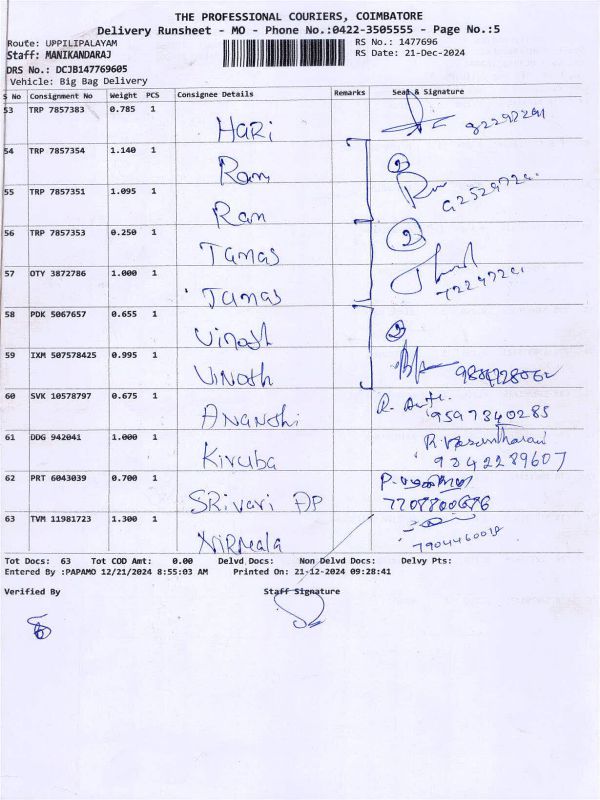 THE PROFESSIONAL COURIERS, COIMBATORE
Delivery Runsheet - MO - Phone No.:0422-3505555 - Page No.:5
Route: UPPILIPALAYAM RS No.: 1477696
Staff: MANIKANDARAJ RS Date: 21-Dec-2024
DRS No.: DCJB147769605
Vehicle: Big Bag Delivery
S No Consignment No Weight PCS Consignee Details Remarks Seal & Signature
53 TRP 7857383 0.785 1 Hari
54 TRP 7857354 1.140 1 Ram 2
55 TRP 7857351 1.095 1 Ram
56 TRP 7857353 0.250 1 Tamas 2
57 OTY 3872786 1.000 1 Tamas
58 PDK 5067657 0.655 1 Vinoth 2
59 IXM 507578425 0.995 1 Vinoth
60 SVK 10578797 0.675 1 Ananthi 9597340285
61 DDG 942041 1.000 1 Kiruba R. Vasantharani 9342289607
62 PRT 6043039 0.700 1 SRivari DP 7708800686
63 TVM 11981723 1.300 1 NIRMala
Tot Docs: 63 Tot COD Amt: 0.00 Delvd Docs: Non Delvd Docs: Delvy Pts:
Entered By :PAPAMO 12/21/2024 8:55:03 AM Printed On: 21-12-2024 09:28:41
Verified By Staff Signature